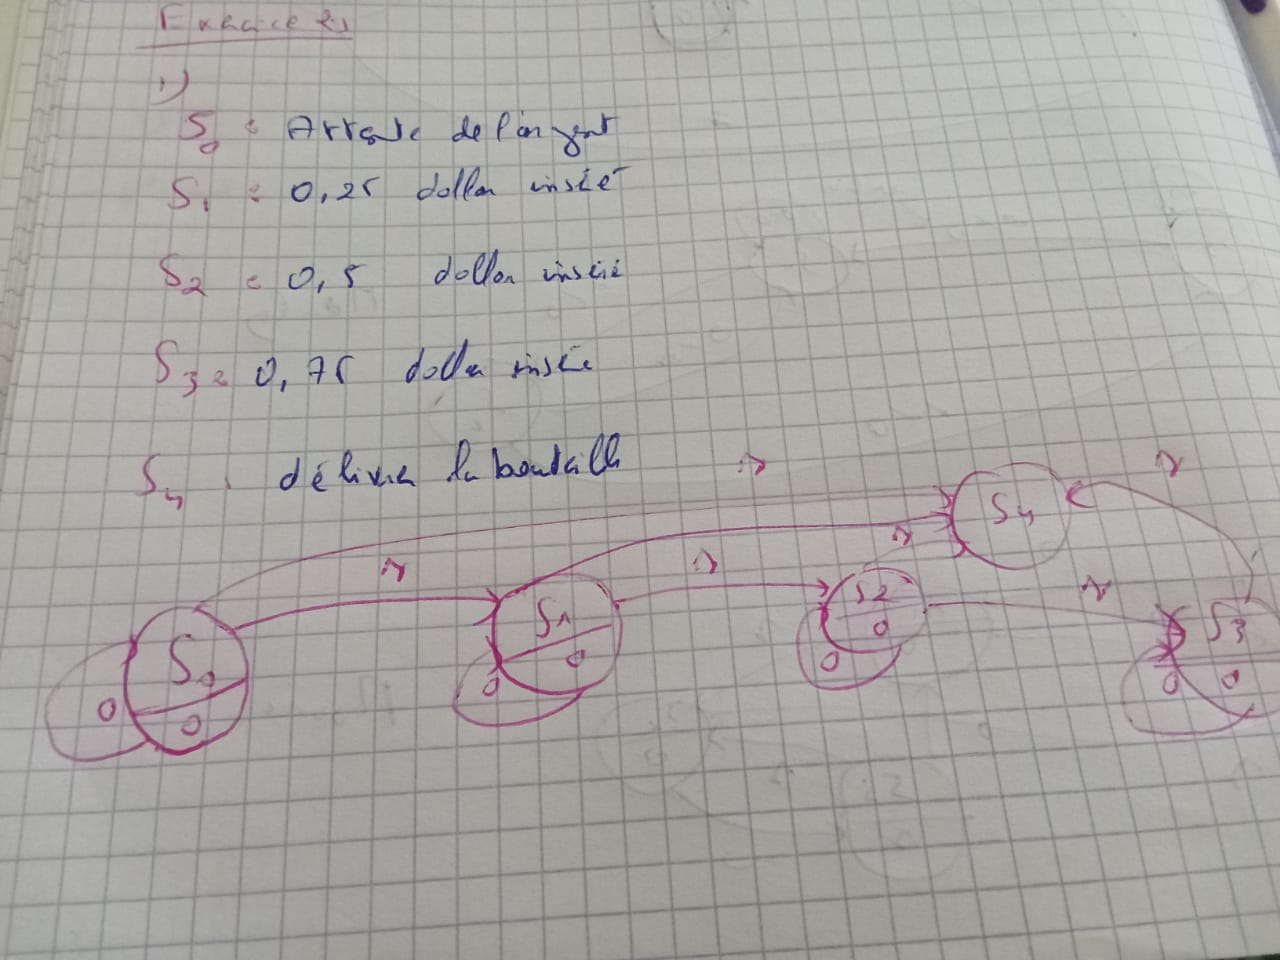 Exercice 2)
1)
S0 = Attente de l'argent
S1 = 0,25 dollar inséré
S2 = 0,5 dollar inséré
S3 = 0,75 dollar insérée
S4 : délivrer la bouteille
1
S4
1
1
1
1
1
S0
0
0
S1
0
0
S2
0
0
S3
0
0